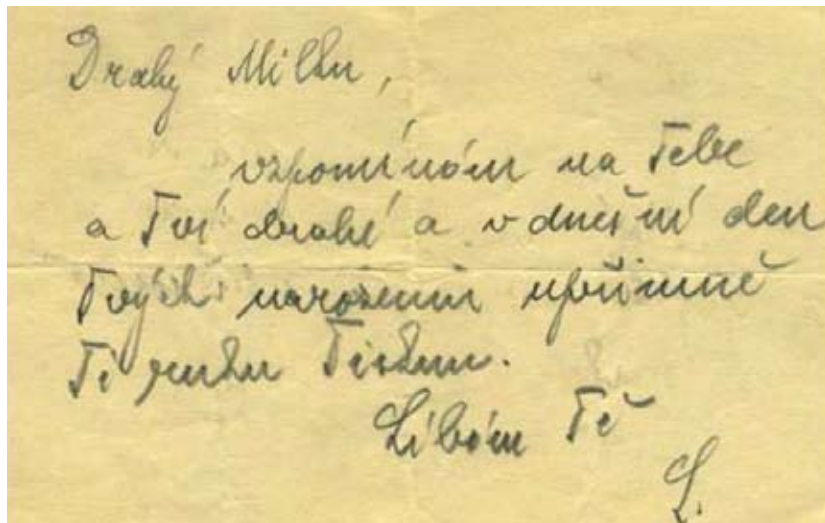 Drahý Milku,
vzpomínám na Tebe
a Tvé drahé a v dnešní den
Tvých narozenin upřímně
Ti ruku tisknu.
Líbám Tě
L.